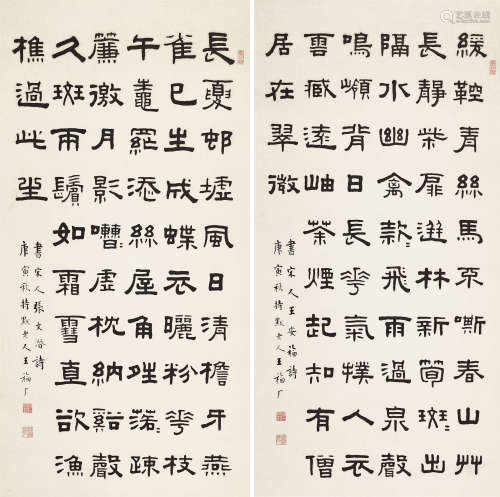 緩鞚青絲馬不嘶春山艸
長靜柴扉迸林新筍斑〻出
隔水幽禽款〻飛雨過泉聲
鳴嶺背日長蕐氣撲人衣
雲臧遠岫茶煙起知有僧
居在翠微
書宋人王安福詩
庚寅秋持默老人王福厂
長夏邨墟風日清檐牙燕
雀已生成蝶衣曬粉蕐枝
午鼄网添絲屋角姓落〻疎
簾邀月影嘈〻虛枕納谿聲
久斑兩鬢如霜雪直欲漁
樵過此生
書宋人張文潛詩
庚寅秋持默老人王福厂